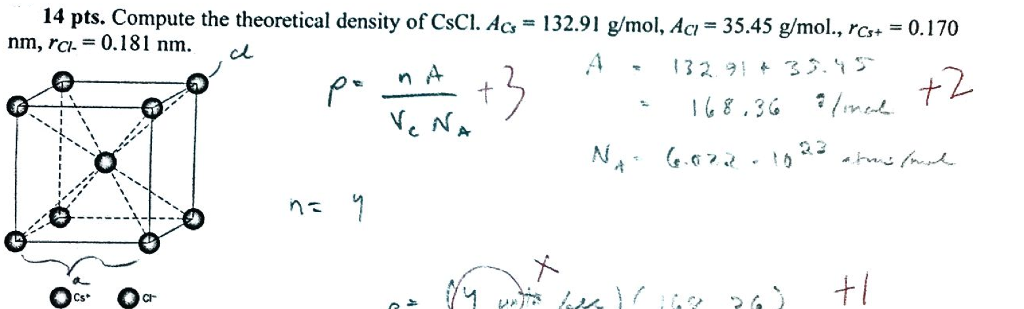 14 pts. Compute the theoretical density of CsCl. A_Cs = 132.91 g/mol, A_Cl = 35.45 g/mol., r_Cs+ = 0.170
nm, r_Cl- = 0.181 nm.
cl
ρ = n A / V_c N_A +3
A = 132.91 + 35.45 +2
= 168.36 g/mol
N_A = 6.022 · 10^23 atoms/mol
n = 4
a
Cs+ Cl-
ρ = (4 units / (168.36) +1